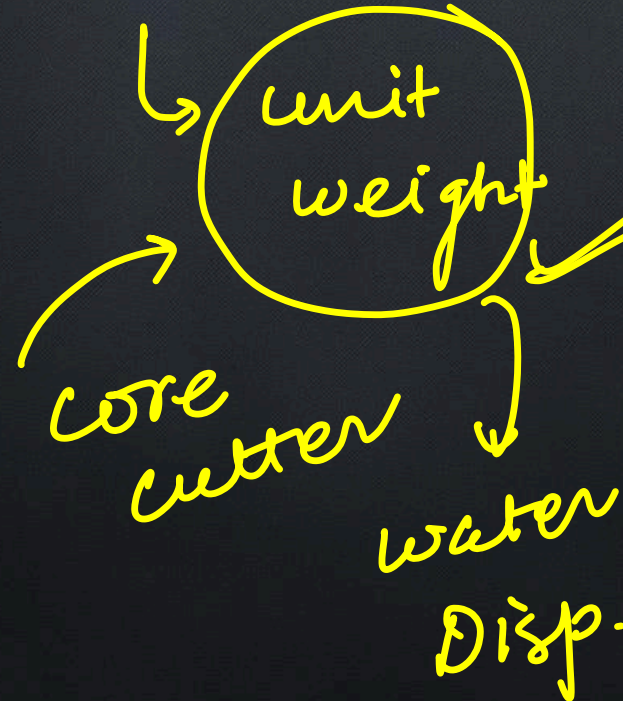 unit
weight
core
cutter
water
Disp.